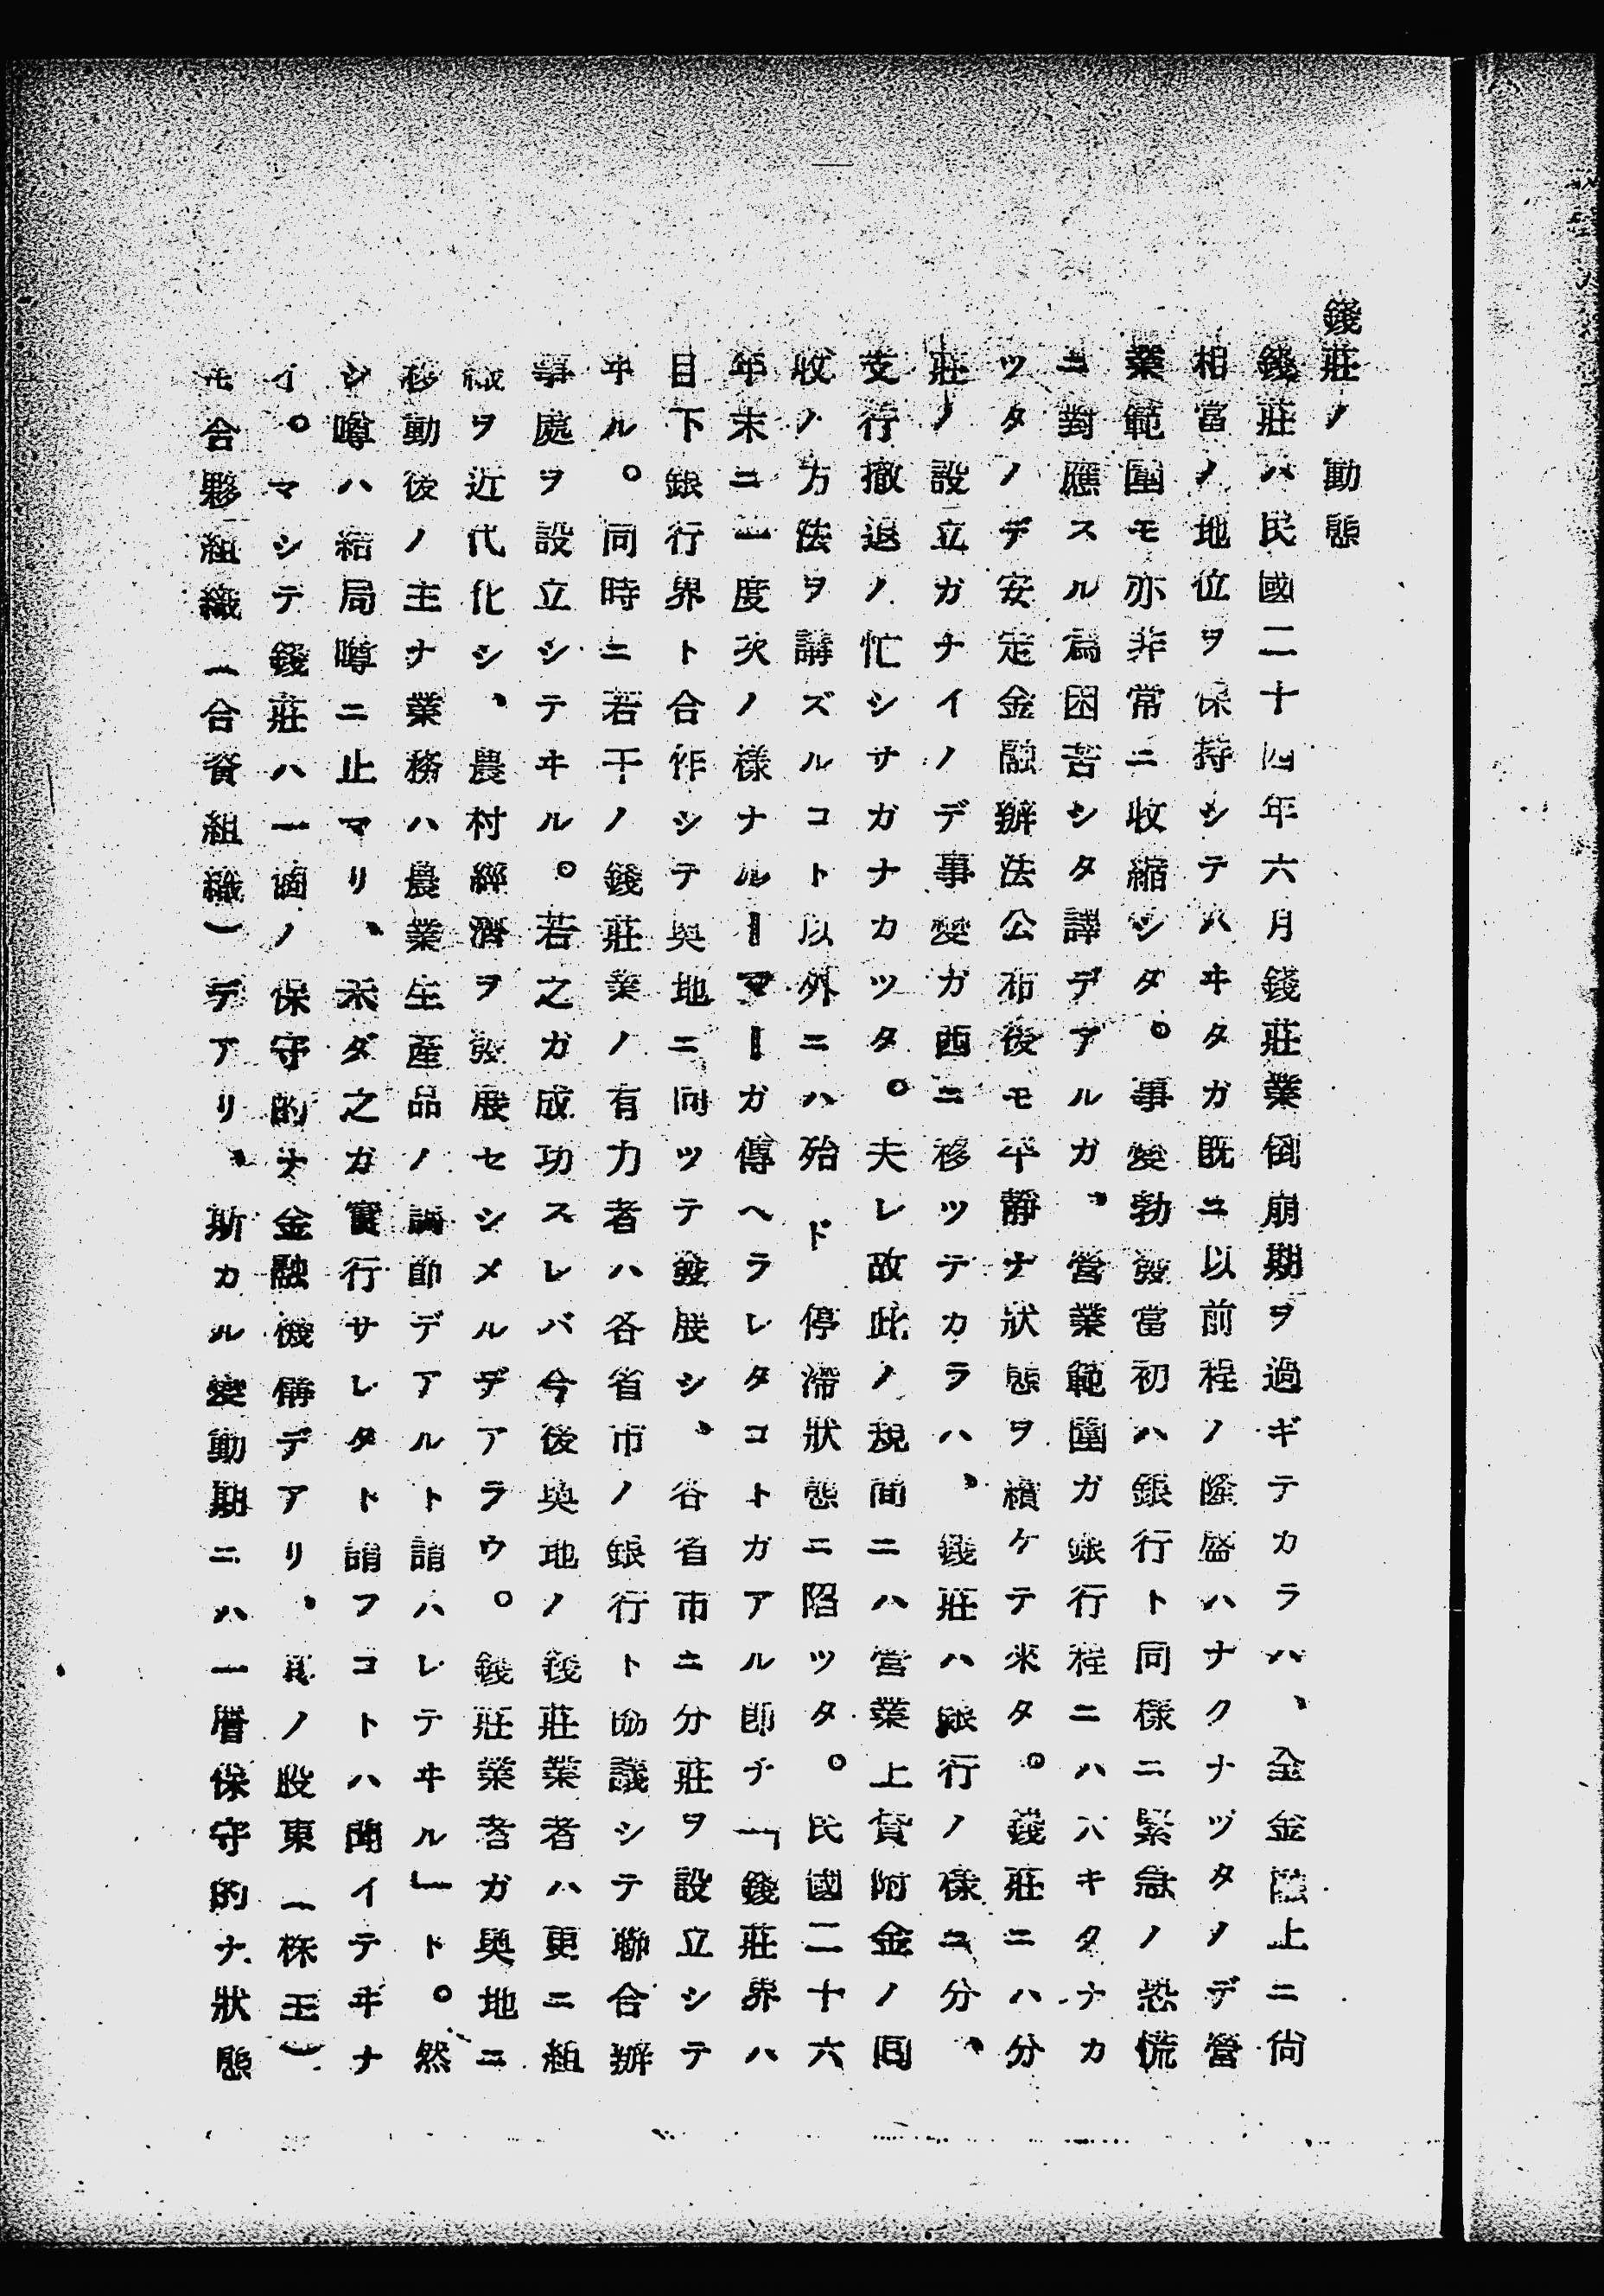 錢莊ノ動態
錢莊ハ民國二十四年六月錢莊業倒崩期ヲ過ギテカラハ、全金融上ニ尙
相當ノ地位ヲ保持シテハヰタガ既ニ以前程ノ隆盛ハナクナツタノデ營
業範圍モ亦非常ニ收縮シタ。事變勃發當初ハ銀行ト同樣ニ緊急ノ恐慌
ニ對應スル爲困苦シタ譯デアルガ、營業範圍ガ銀行程ニハ大キクナカ
ツタノデ安定金融辦法公布後モ平靜ナ狀態ヲ續ケテ來タ。錢莊ニハ分
莊ノ設立ガナイノデ事變ガ西ニ移ツテカラハ、錢莊ハ銀行ノ樣ニ分、
支行撤退ノ忙シサガナカツタ。夫レ故此ノ規間ニハ營業上貸附金ノ囘
收ノ方法ヲ講ズルコト以外ニハ殆ド停滯狀態ニ陷ツタ。民國二十六
年末ニ一度次ノ樣ナルーマーガ傳ヘラレタコトガアル卽チ「錢莊界ハ
目下銀行界ト合作シテ奧地ニ向ツテ發展シ、各省市ニ分莊ヲ設立シテ
ヰル。同時ニ若干ノ錢莊業ノ有力者ハ各省市ノ銀行ト協議シテ聯合辦
事處ヲ設立シテヰル。若之ガ成功スレバ今後奧地ノ錢莊業者ハ更ニ組
織ヲ近代化シ、農村經濟ヲ發展セシメルデアラウ。錢莊業者ガ奧地ニ
移動後ノ主ナ業務ハ農業生產品ノ調節デアルト謂ハレテヰル」ト。然
シ噂ハ結局噂ニ止マリ、未ダ之ガ實行サレタト謂フコトハ聞イテヰナ
イ。マシテ錢莊ハ一種ノ保守的ナ金融機構デアリ、其ノ股東（株主）
モ合夥組織（合資組織）デアリ、斯カル變動期ニハ一層保守的ナ狀態